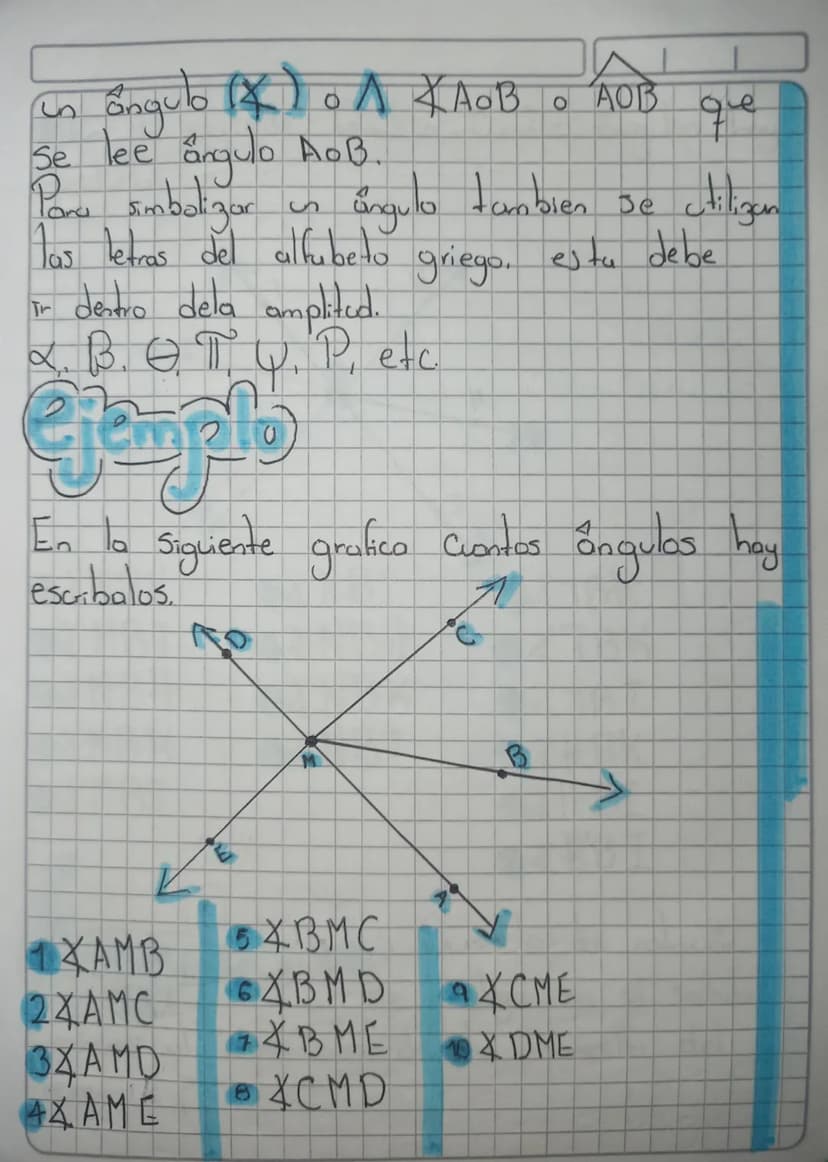 un ángulo (∡) o ∧ ∡AOB o AOB que
se lee ángulo AOB.
Para simbolizar un ángulo tambien se utilizan
las letras del alfabeto griego. esta debe
Ir dentro dela amplitud.
α, β, θ, π, ψ, ρ, etc.
Ejemplo
En la siguiente grafico cuantos ángulos hay
escribalos.
D
C
M
B
E
A
1 ∡AMB
2 ∡AMC
3 ∡AMD
4 ∡AME
5 ∡BMC
6 ∡BMD
7 ∡BME
8 ∡CMD
9 ∡CME
10 ∡DME